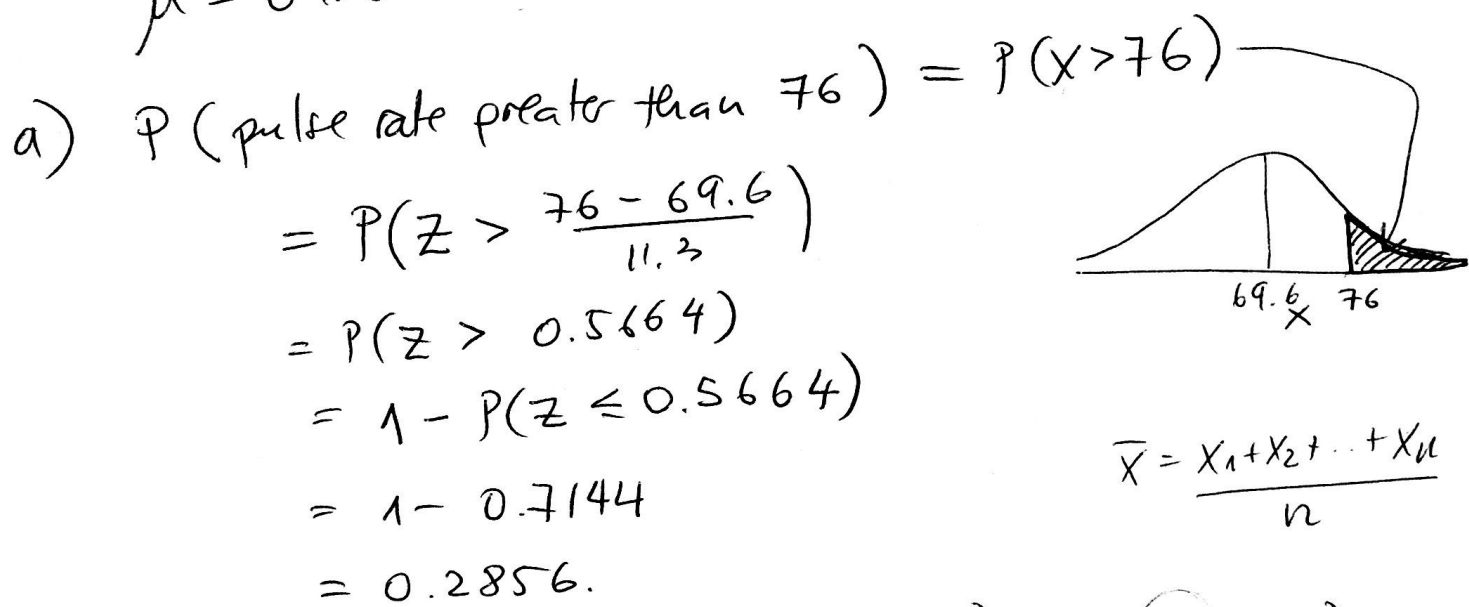 μ =
a) P(pulse rate greater than 76) = P(X>76)
= P(Z > (76 - 69.6)/11.3)
= P(Z > 0.5664)
= 1 - P(Z ≤ 0.5664)
= 1 - 0.7144
= 0.2856.
69.6 76
X
X̄ = (X₁+X₂+..+Xn)/n